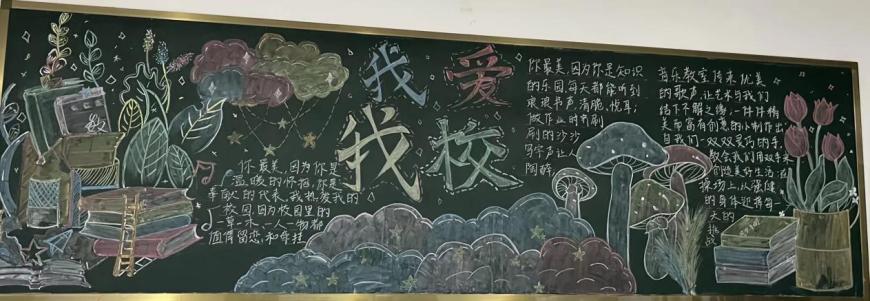 我爱
我校
你最美,因为你是
温暖的怀抱,你是
幸福的代表,我热爱我的
校园,因为校园里的
一草一木、一人一物都
值得留恋,和牵挂
你最美,因为你是知识
的乐园每天都能听到
琅琅书声,清脆,悦耳;
做作业时的刷
刷的沙沙
写字声让人
陶醉
音乐教室传来优美
的歌声,让艺术与我们
结下不解之缘,一件件精
美而富有创意的小制作出
自我们一双双灵巧的手,
教会我们用双手来
创造美好生活;在
操场上以强健
的身体迎接每一
天的
挑战